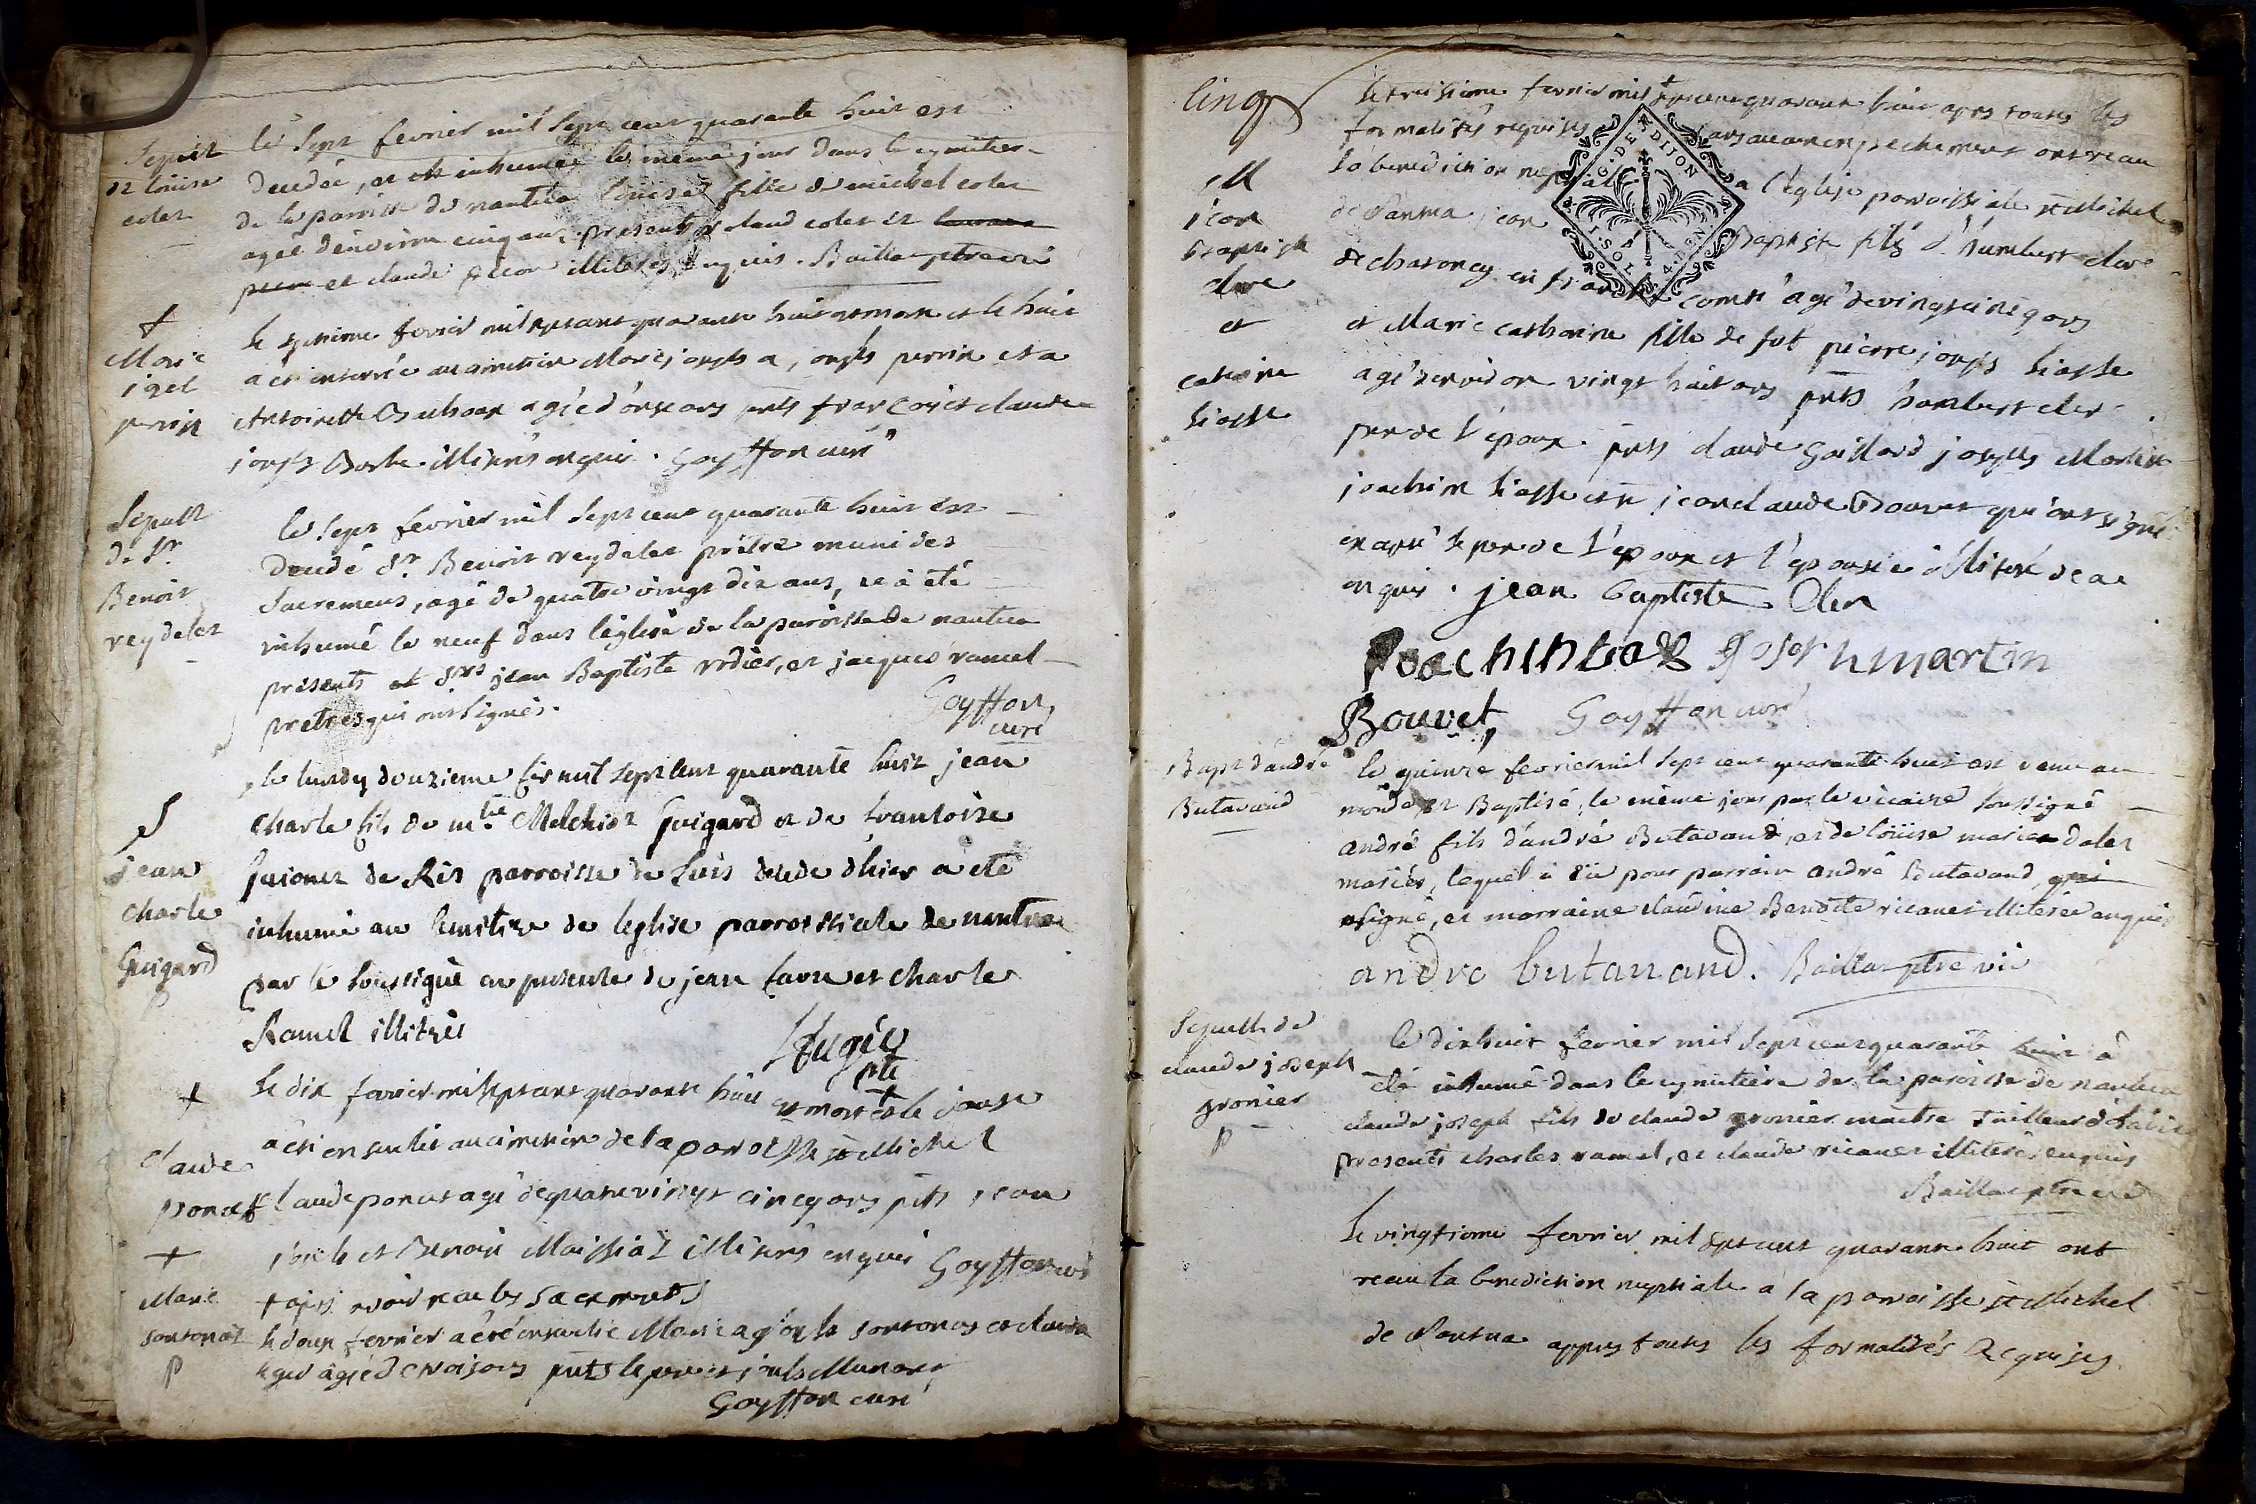 Sepult
de loüise
colet
le sept fevrier mil sept cent quarante huit est
decedée, et est inhumée le même jour dans le cymetier
de la paroisse de nantua loüise fille de michel colet
agée d'environ cinq ans. presents claud colet et
et claude illiterés enquis. Baillat ptre vic
+
Marie
perrin
le septieme fevrier mil sept cent quarante huit est morte et le huit
a été enterrée au cimetiere Marie joseph a joseph perrin et a
Antoinette agée d'onze ans pnts françois et claude
joseph illiterés enquis. Goyffon curé
Sepult
de Sr
Benoit
reydelet
le sept fevrier mil sept cent quarante huit est
decedé Sr Benoit reydelet prêtre muni des
sacremens, agé de quatre vingt dix ans, et a été
inhumé le neuf dans l'église de la paroisse de nantua
présents et Srs jean Baptiste rodier, et jacques ramel
pretres qui ont signés.
Goyffon
curé
S
jean
charle
Guigard
p
le lundy douzieme fev mil sept cent quarante huit jean
charle fils de Melchior Guigard et de francoise
de Ris parroisse de decede d'hier a eté
inhumé au cemitire de leglise parroissiale de nantua
par le soussigné en presence de jean et charle
Ramel illitrés
ptre
+
Claude
poncet
le dix fevrier mil sept cent quarante huit est mort et le onze
a été enseveli au cimetiere de la paroisse st Michel
Claude poncet agé de quatre vingt cinq ans pnts jean
et Benoit Maissiat illiterés enquis Goyffon curé
+ apres avoir receu les sacrements
+
Marie
sontonas
p
le douze fevrier a été ensevelie Marie a joseph sontonas et claudine
agée de trois ans pnts le pere et joseph
Goyffon curé
cinq
M
jean
baptiste
clerc
et
catherine
liasse
le treisieme fevrier mil sept cent quarante huit apres toutes les
formalités requises sans aucun empechement ont receu
la benediction nuptiale a l'eglise paroissiale st Michel
de Nantua jean Baptiste fils d'humbert clerc
de charency en franche comté agé de vingt cinq ans
et Marie catherine fille de fut pierre joseph liasse
agée d'environ vingt huit ans pnts humbert clerc
pere de l'epoux. pnts claude Gaillard joseph Martin
joachim liasse et jean claude Bouvet qui ont signé
excepté le pere de l'epoux et l'epouse illiteré de ce
enquis. jean baptiste Cler
Joachin Lias Joseph martin
Bouvet Goyffon curé
Bapt d'andré
Butavand
le quinze fevrier mil sept cent quarante huit est venu au
monde et Baptisé, le même jour par le vicaire soussigné
andré fils d'andré Butavand, et de loüise marie dolet
mariés, lequel a eü pour parrain andré Butavand, qui
a signé, et marraine claudine Benoite ricanet illiterée enquis
andre butauand. Baillat ptre vic
Sepult. de
claude joseph
gronier
p
le dixhuit fevrier mil sept cent quarante huit a
été inhumé dans le cymetiere de la paroisse de nantua
claude joseph fils de claude gronier maître tailleur d'habits
presents charles ramel, et claude ricanet illiterés enquis
Baillat ptre vic
le vingtieme fevrier mil sept cent quarante huit ont
receu la benediction nuptiale a la paroisse st Michel
de Nantua appres toutes les formalités Requises
G. DE DIJON
4. DEN